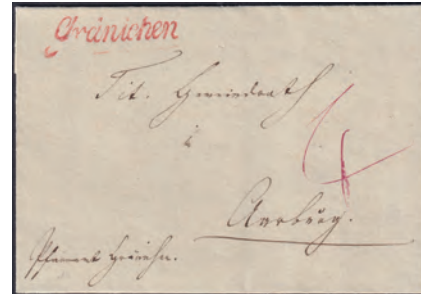 Gränichen
Tit. Gemeindrath
à
Aarburg.
Pfarramt Gränichen.
4